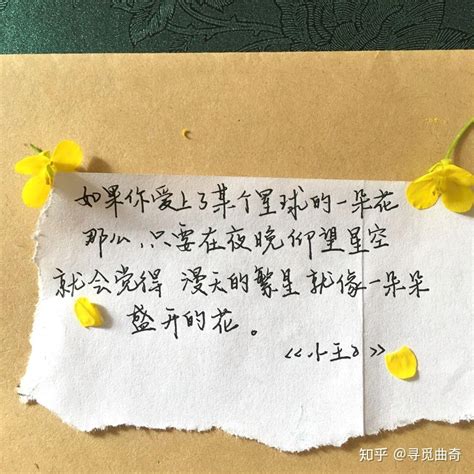 如果你爱上了某个星球的一朵花
那么,只要在夜晚仰望星空
就会觉得 漫天的繁星就像一朵朵
盛开的花。
《小王子》
知乎 @寻觅曲奇